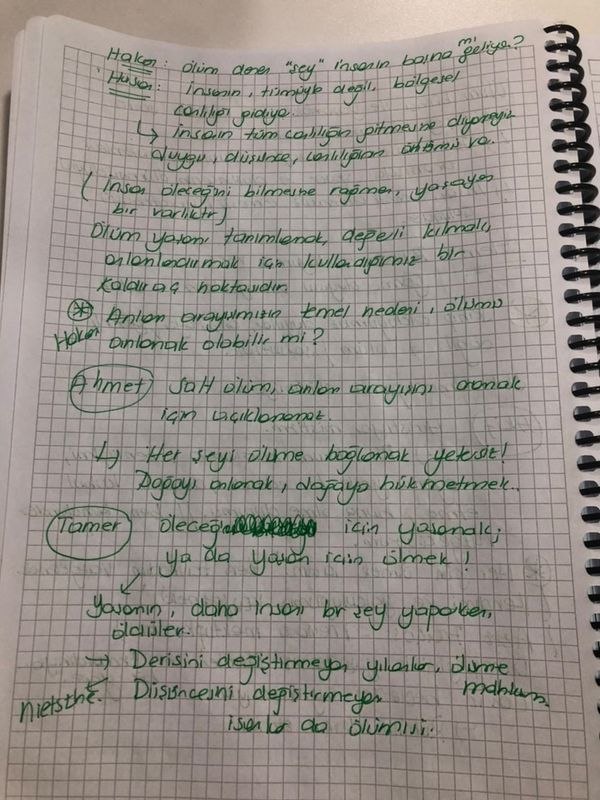 Hakan: ölüm denen "şey" insanın başına mı geliyor?
Hüsen: insanın, tümüyle değil, bölgesel
canlılığı gidiyo.
↳ insanın tüm canlılığın gitmesine diyoruz
duygu, düşünce, canlılığının
(insan öleceğini bilmesine rağmen, yaşayan
bir varlıktır)
Ölüm yaşamı tanımlamak, değerli kılmak,
anlamlandırmak için kullandığımız bir
kaldıraç noktasıdır.
* Anlam arayışımızın temel nedeni, ölümü
Hakan anlamak olabilir mi?
Ahmet salt ölüm, anlam arayışını aramak
için açıklanamaz.
↳ Her şeyi ölüme bağlamak yetersiz!
Doğayı anlamak, doğaya hükmetmek..
Tamer öleceği için yaşamak;
ya da yaşam için ölmek!
Yaşamın, daha insani bir şey yaparken,
öldüler.
→ Derisini değiştirmeyen yılanlar, ölüme
mahkum.
Nietsthe. Düşüncesini değiştirmeyen
insanlar da ölümlü.